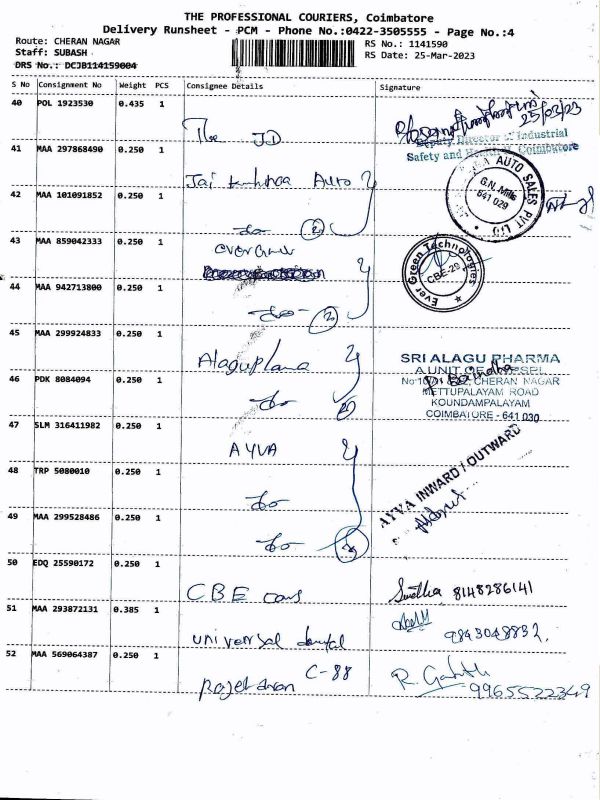 THE PROFESSIONAL COURIERS, Coimbatore
Delivery Runsheet - PCM - Phone No.:0422-3505555 - Page No.:4
Route: CHERAN NAGAR
RS No.: 1141590
Staff: SUBASH
RS Date: 25-Mar-2023
DRS No.: DCJB114159004
S No Consignment No Weight PCS Consignee Details Signature
40 POL 1923530 0.435 1
The JD
25/03/23
Deputy Director of Industrial
Safety and Health, Coimbatore
41 MAA 297868490 0.250 1
Jai Auto
AUTO SALES PVT LTD
G.N. Mills
641 029
42 MAA 101091852 0.250 1
do (2)
43 MAA 859042333 0.250 1
evergreen
Ever Green Technologies
CBE-29
44 MAA 942713800 0.250 1
do (2)
45 MAA 299924833 0.250 1
SRI ALAGU PHARMA
A UNIT OF
CHERAN NAGAR
METTUPALAYAM ROAD
KOUNDAMPALAYAM
COIMBATORE - 641 030
46 PDK 8084094 0.250 1
do (2)
47 SLM 316411982 0.250 1
AYVA
AYVA INWARD / OUTWARD
48 TRP 5080010 0.250 1
do
49 MAA 299528486 0.250 1
do (3)
50 EDQ 25590172 0.250 1
CBE cons
Swetha 8148286141
51 MAA 293872131 0.385 1
universal dental
9843048832.
52 MAA 569064387 0.250 1
Rajendran C-88
R. 9965522349